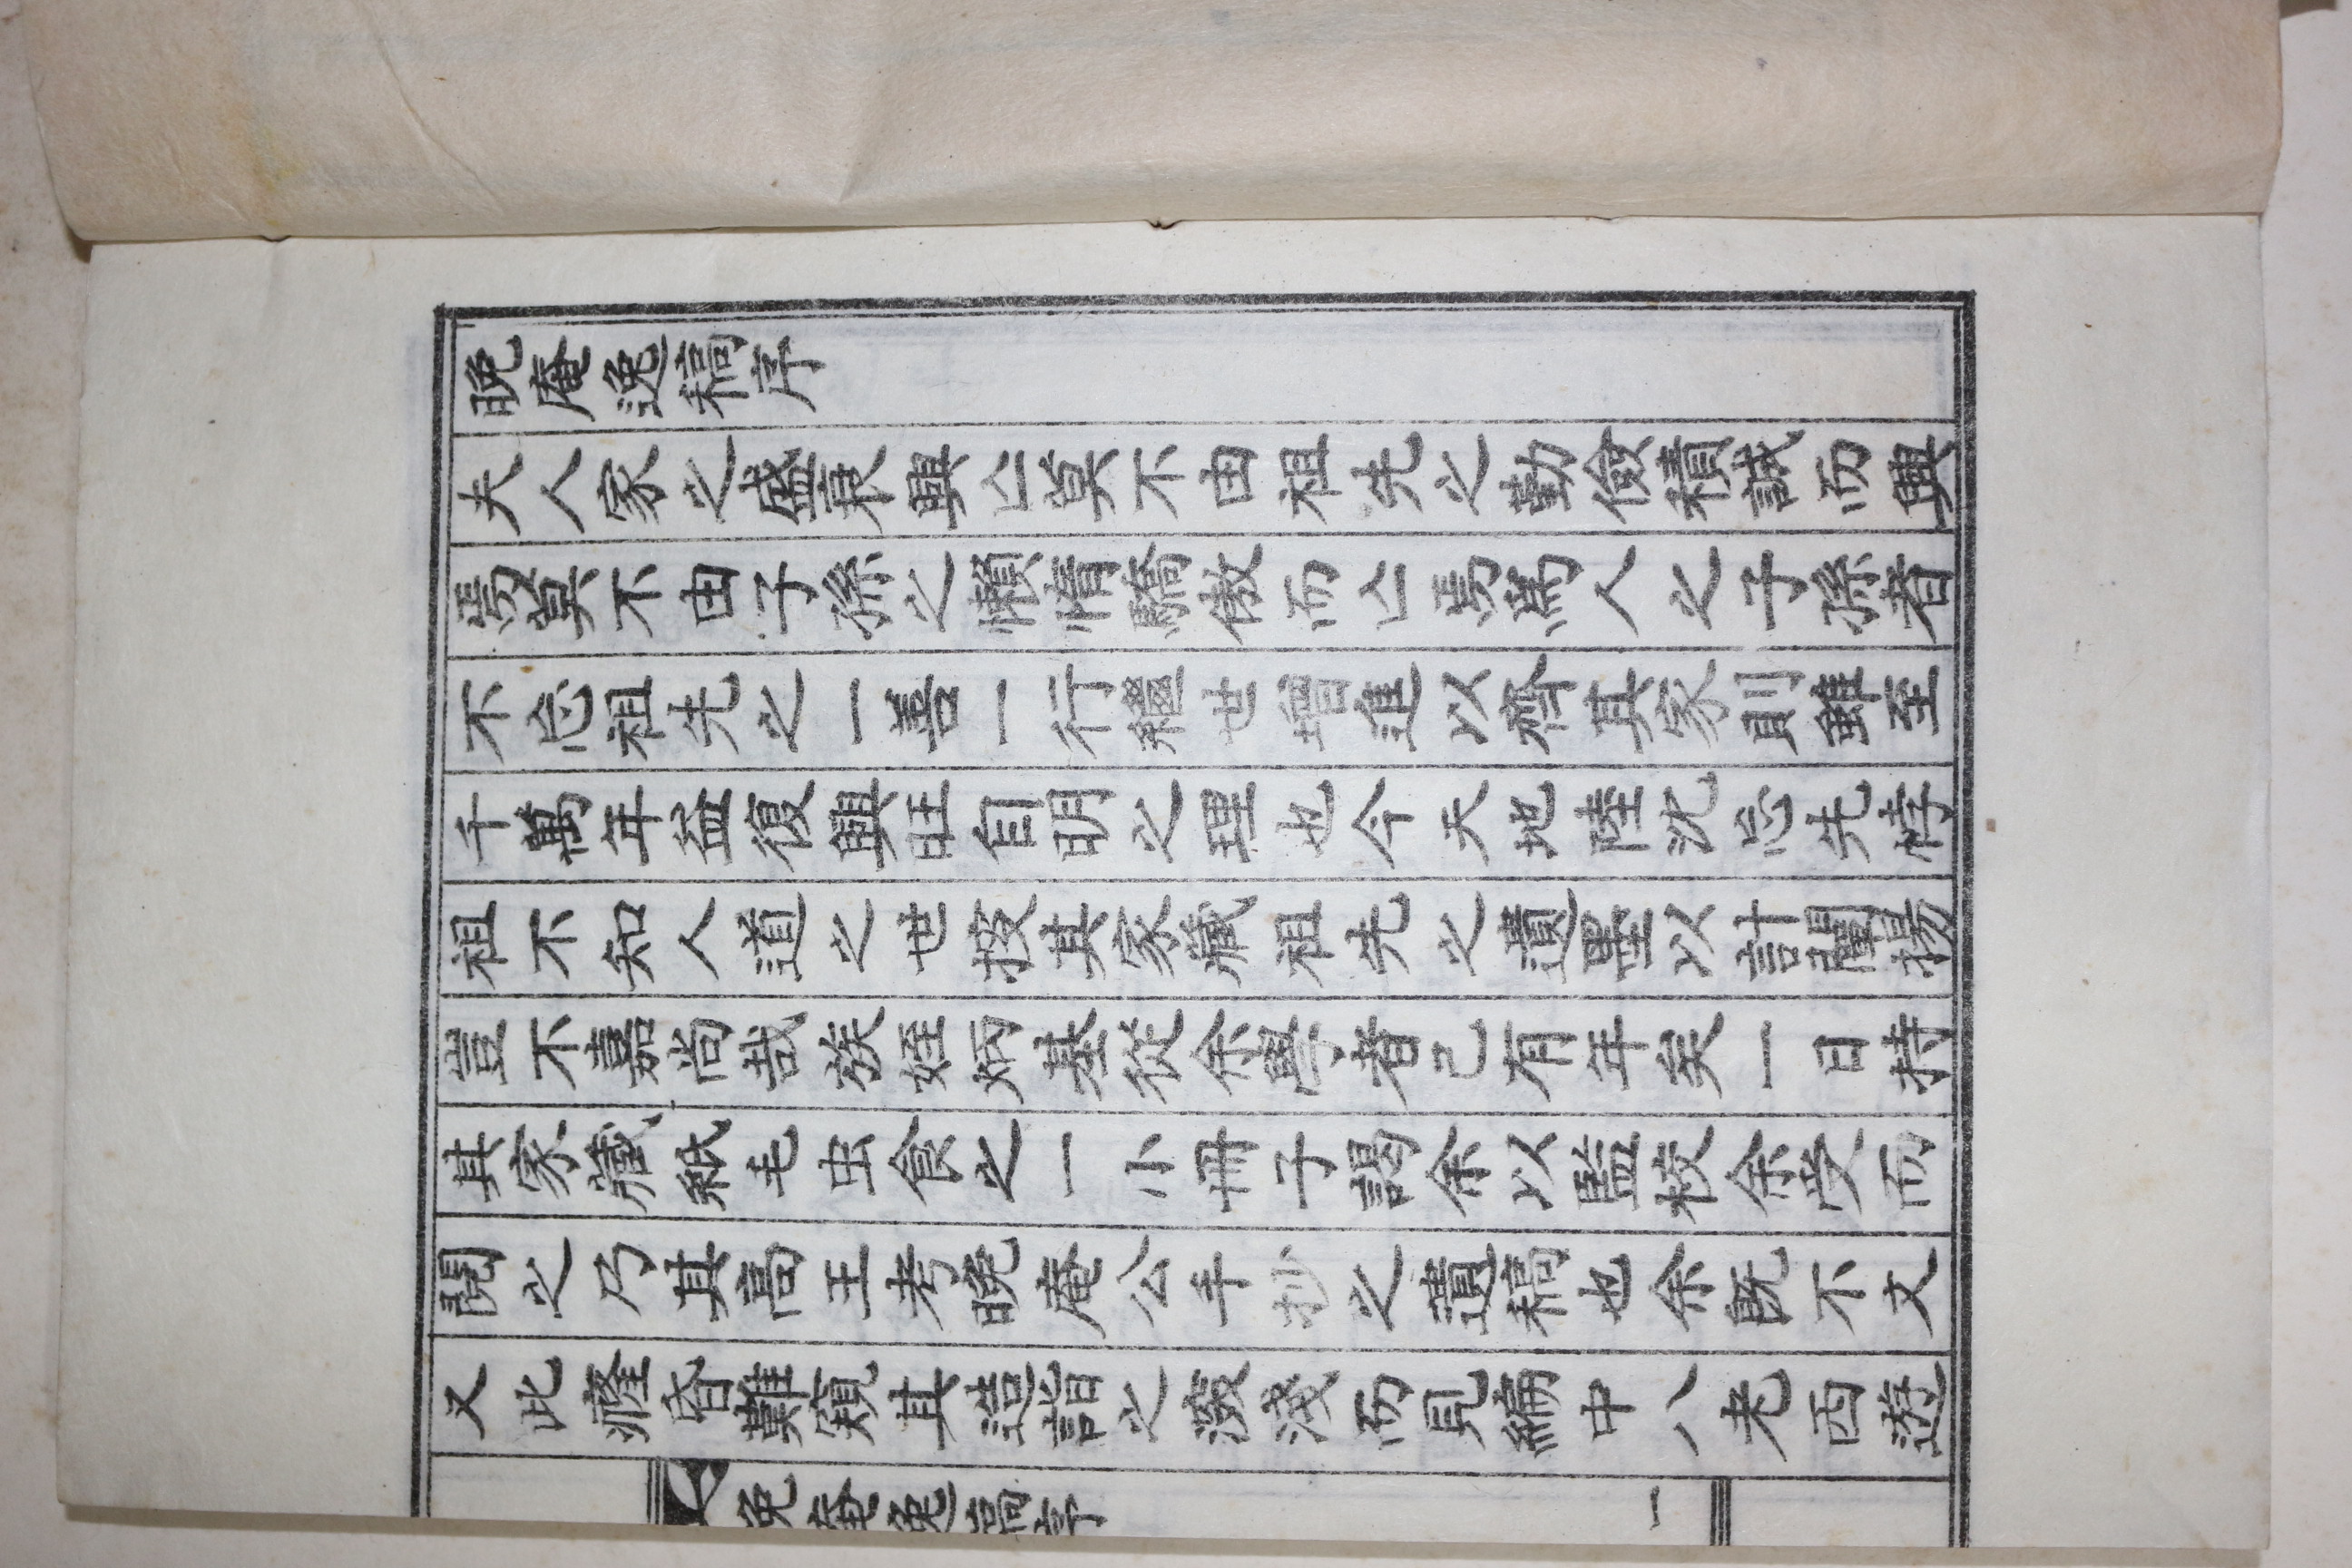 晩庵逸稿序
夫人家之盛衰興亾莫不由祖先之勤儉積誠而興
焉莫不由子孫之懶惰驕傲而亾焉爲人之子孫者
不忘祖先之一善一行繼世增進以齊其家則雖至
千萬年益復興旺自明之理也今天地陸沈忘先悖
祖不知人道之世按其家藏祖先之遺墨以計闡揚
豈不嘉尚哉族姪炳基從余學者已有年矣一日持
其家藏紙毛虫食之一小冊子謁余以監校余受而
閱之乃其高王考晩庵公手抄之遺稿也余旣不文
又此癃昏難窺其造詣之深淺而見編中八老西遊
晩庵逸稿序 一